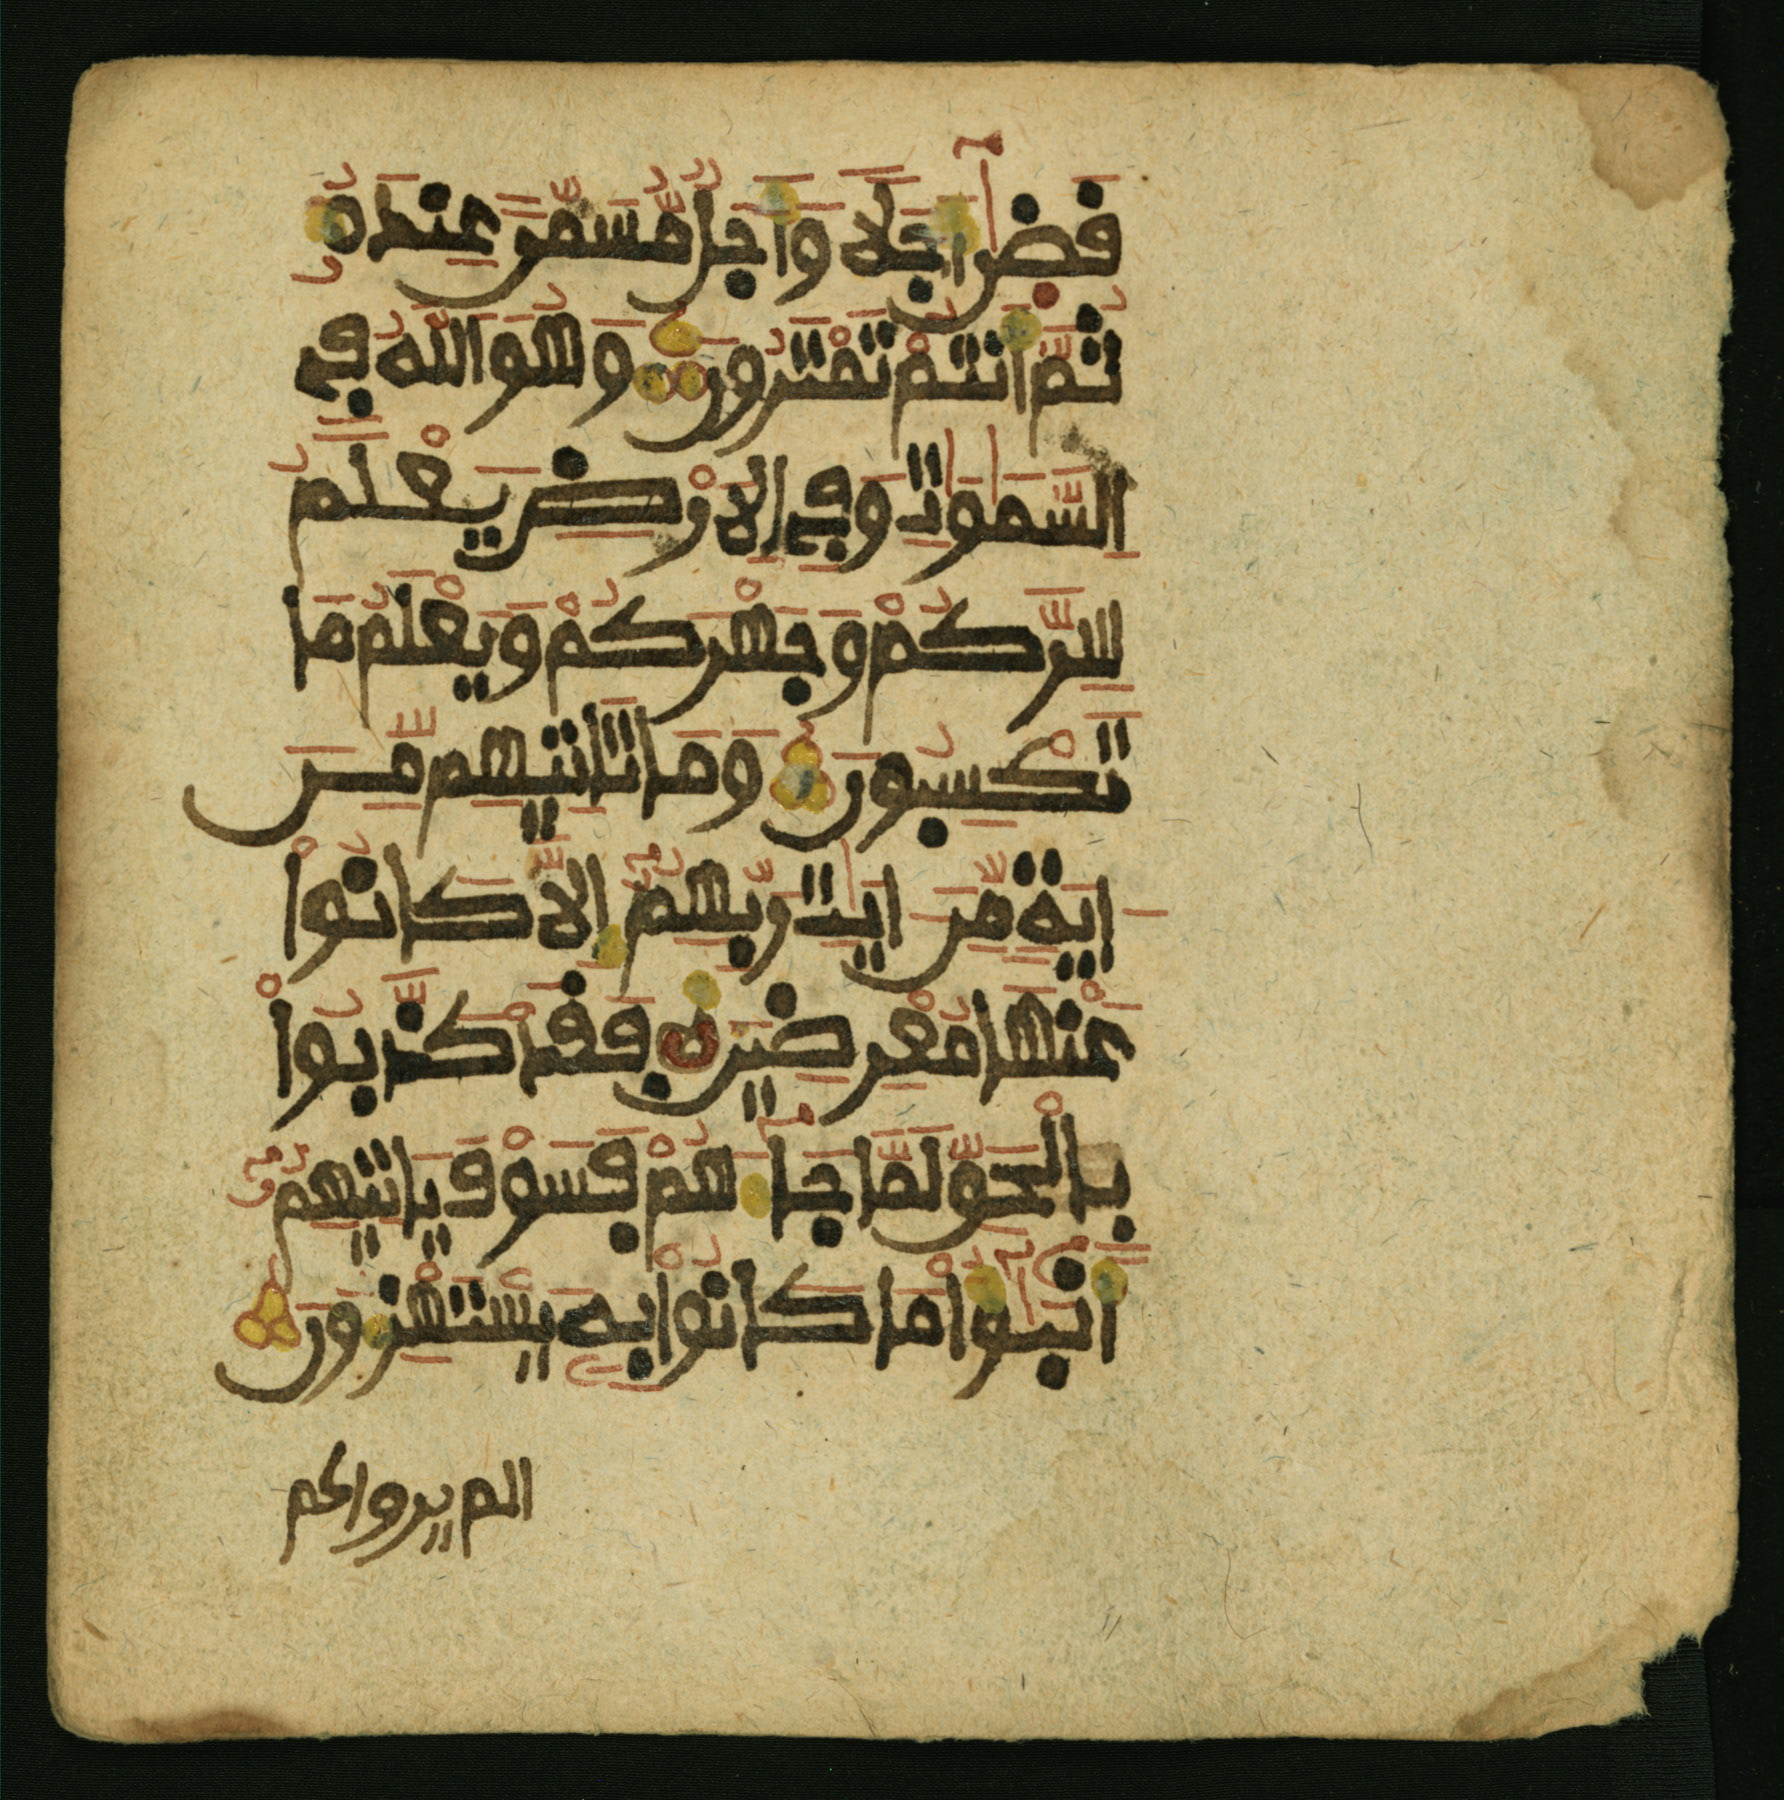 قَضىٰ أَجَلاً وَأَجَلٌ مُّسَمًّى عِندَهُ
ثُمَّ أَنتُمْ تَمْتَرُونَ وَهُوَ اللَّهُ فِي
السَّمَٰوَٰتِ وَفِي الَارْضِ يَعْلَمُ
سِرَّكُمْ وَجَهْرَكُمْ وَيَعْلَمُ مَا
تَكْسِبُونَ وَمَا تَاتِيهِم مِّنَ
ايَةٍ مِّنَ ايَٰتِ رَبِّهِمُ إِلاَّ كَانُواْ
عَنْهَا مُعْرِضِينَ فَقَدْ كَذَّبُواْ
بِالْحَقِّ لَمَّا جَآءَهُمْ فَسَوْفَ يَاتِيهِمُ
أَنبَٰٓؤُاْ مَا كَانُواْ بِهِ يَسْتَهْزِءُونَ
الم يروا كم